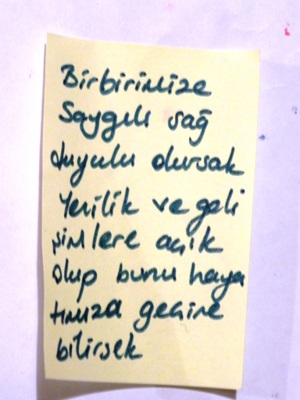 Birbirimize
Saygılı sağ
duyulu olursak
Yenilik ve geli
şimlere açık
olup bunu haya
tımıza geçire
bilirsek